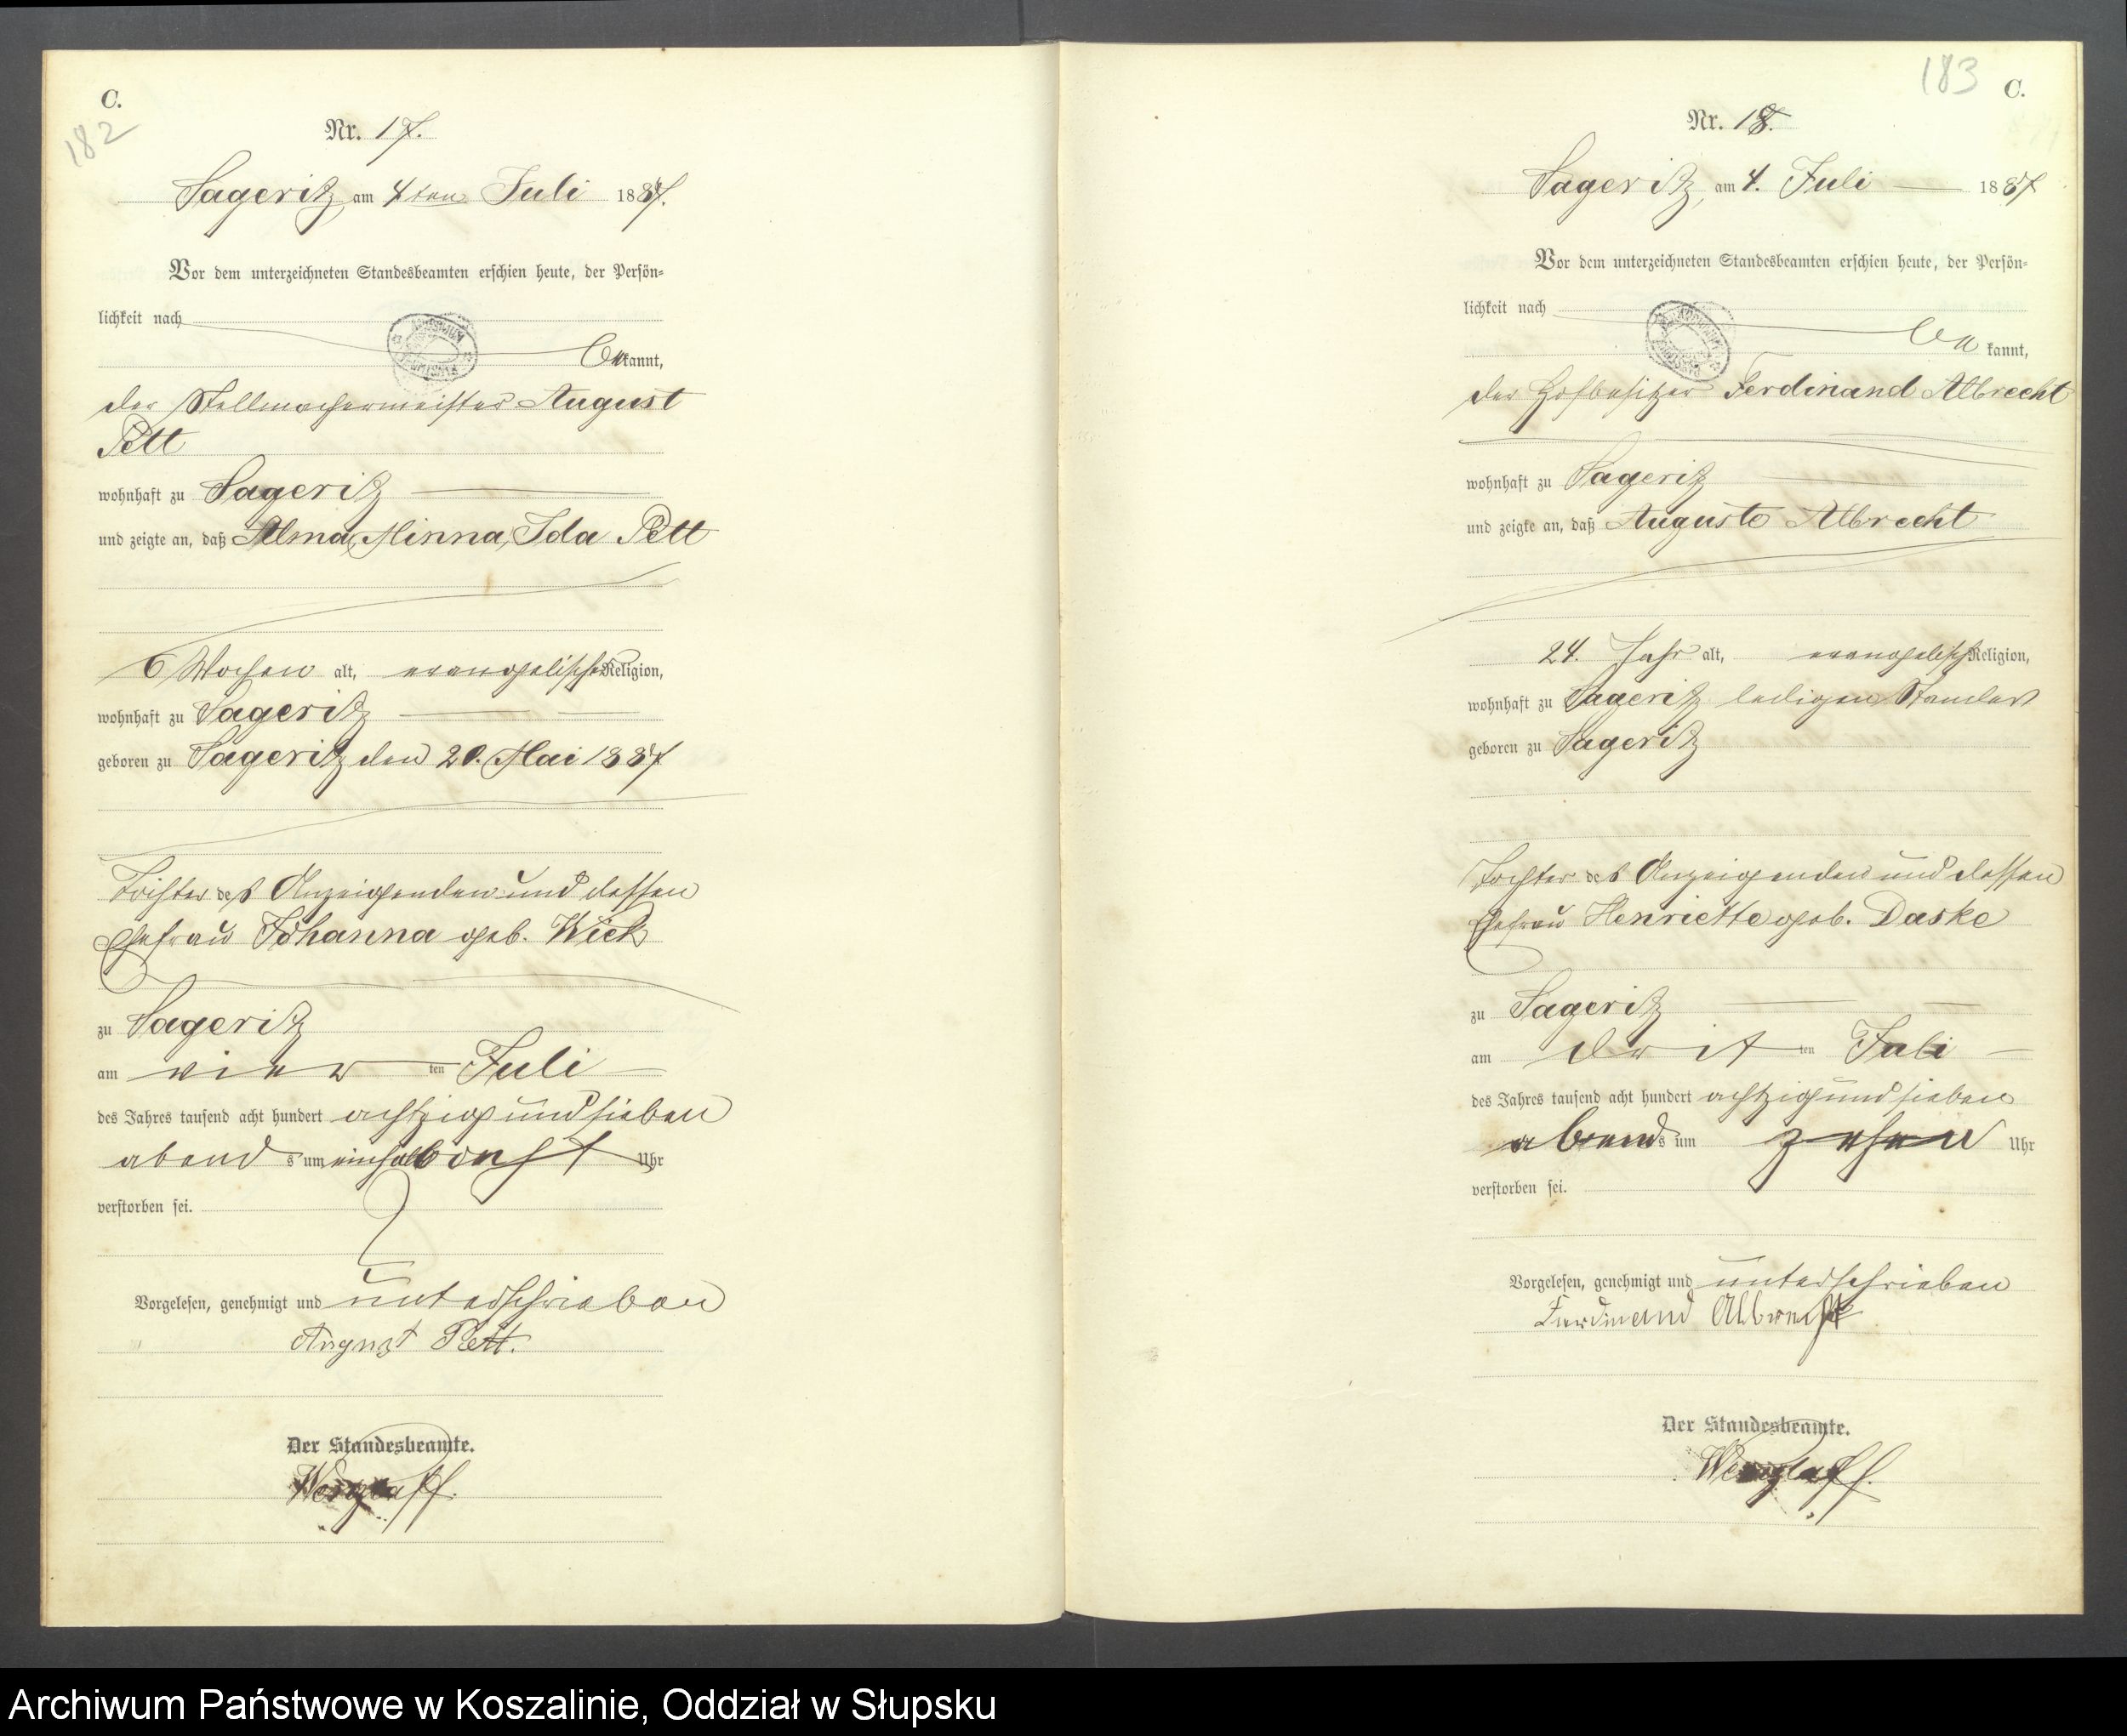 C.
182
Nr. 17.
Sageritz, am 4ten Juli 1887.
Vor dem unterzeichneten Standesbeamten erschien heute, der Persön-
lichkeit nach
bekannt,
der Stellmachermeister August
Pett
wohnhaft zu Sageritz
und zeigte an, daß Alma, Minna, Ida Pett
6 Wochen alt, evangelischer Religion,
wohnhaft zu Sageritz
geboren zu Sageritz den 20. Mai 1887
Tochter des Anzeigenden und dessen
Ehefrau Johanna geb. Wick
zu Sageritz
am vier ten Juli
des Jahres tausend acht hundert achtzig und sieben
abend s um einhalb Uhr
verstorben sei.
Vorgelesen, genehmigt und unterschrieben
August Pett.
Der Standesbeamte.
183
C.
Nr. 18.
Sageritz, am 4. Juli 1887
Vor dem unterzeichneten Standesbeamten erschien heute, der Persön-
lichkeit nach
be kannt,
der Hofbesitzer Ferdinand Albrecht
wohnhaft zu Sageritz
und zeigte an, daß Auguste Albrecht
24. Jahr alt, evangelisch Religion,
wohnhaft zu Sageritz ledigen Standes
geboren zu Sageritz
Tochter des Anzeigenden und dessen
Ehefrau Henriette geb. Daske
zu Sageritz
am drit ten Juli
des Jahres tausend acht hundert achtzig und sieben
abends um zehn Uhr
verstorben sei.
Vorgelesen, genehmigt und unterschrieben
Ferdinand Albrecht
Der Standesbeamte.
Archiwum Państwowe w Koszalinie, Oddział w Słupsku